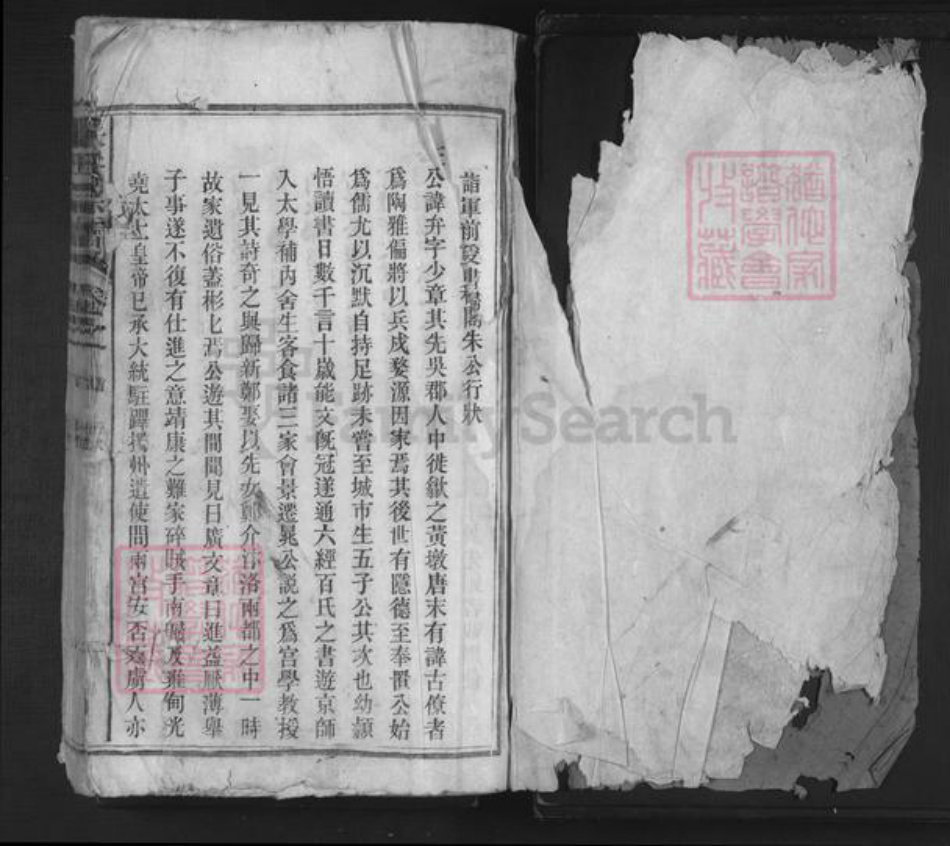 諱軍前○書稿閣朱公行狀
公諱弁字少章其先吳郡人中徙歙之黃墩唐末有諱古僚者
爲陶雅偏將以兵戍婺源因家焉其後世有隱德至奉置公始
爲儒尤以沉默自持足跡未嘗至城市生五子公其次也幼頴
悟讀書日數千言十歲能文旣冠遂通六經百氏之書遊京師
入太學補內舍生客食諸王家會景遷晁公說之爲宮學教授
一見其詩奇之與歸新鄭娶以兄女鄭介汴洛兩都之中一時
故家遺俗蓋彬匕焉公遊其間聞見日廣文章日進益厭薄舉
子事遂不復有仕進之意靖康之難家碎賊手南歸及淮甸光
堯太上皇帝已承大統駐蹕揚州遣使問兩宮安否而虜人亦
FamilySearch